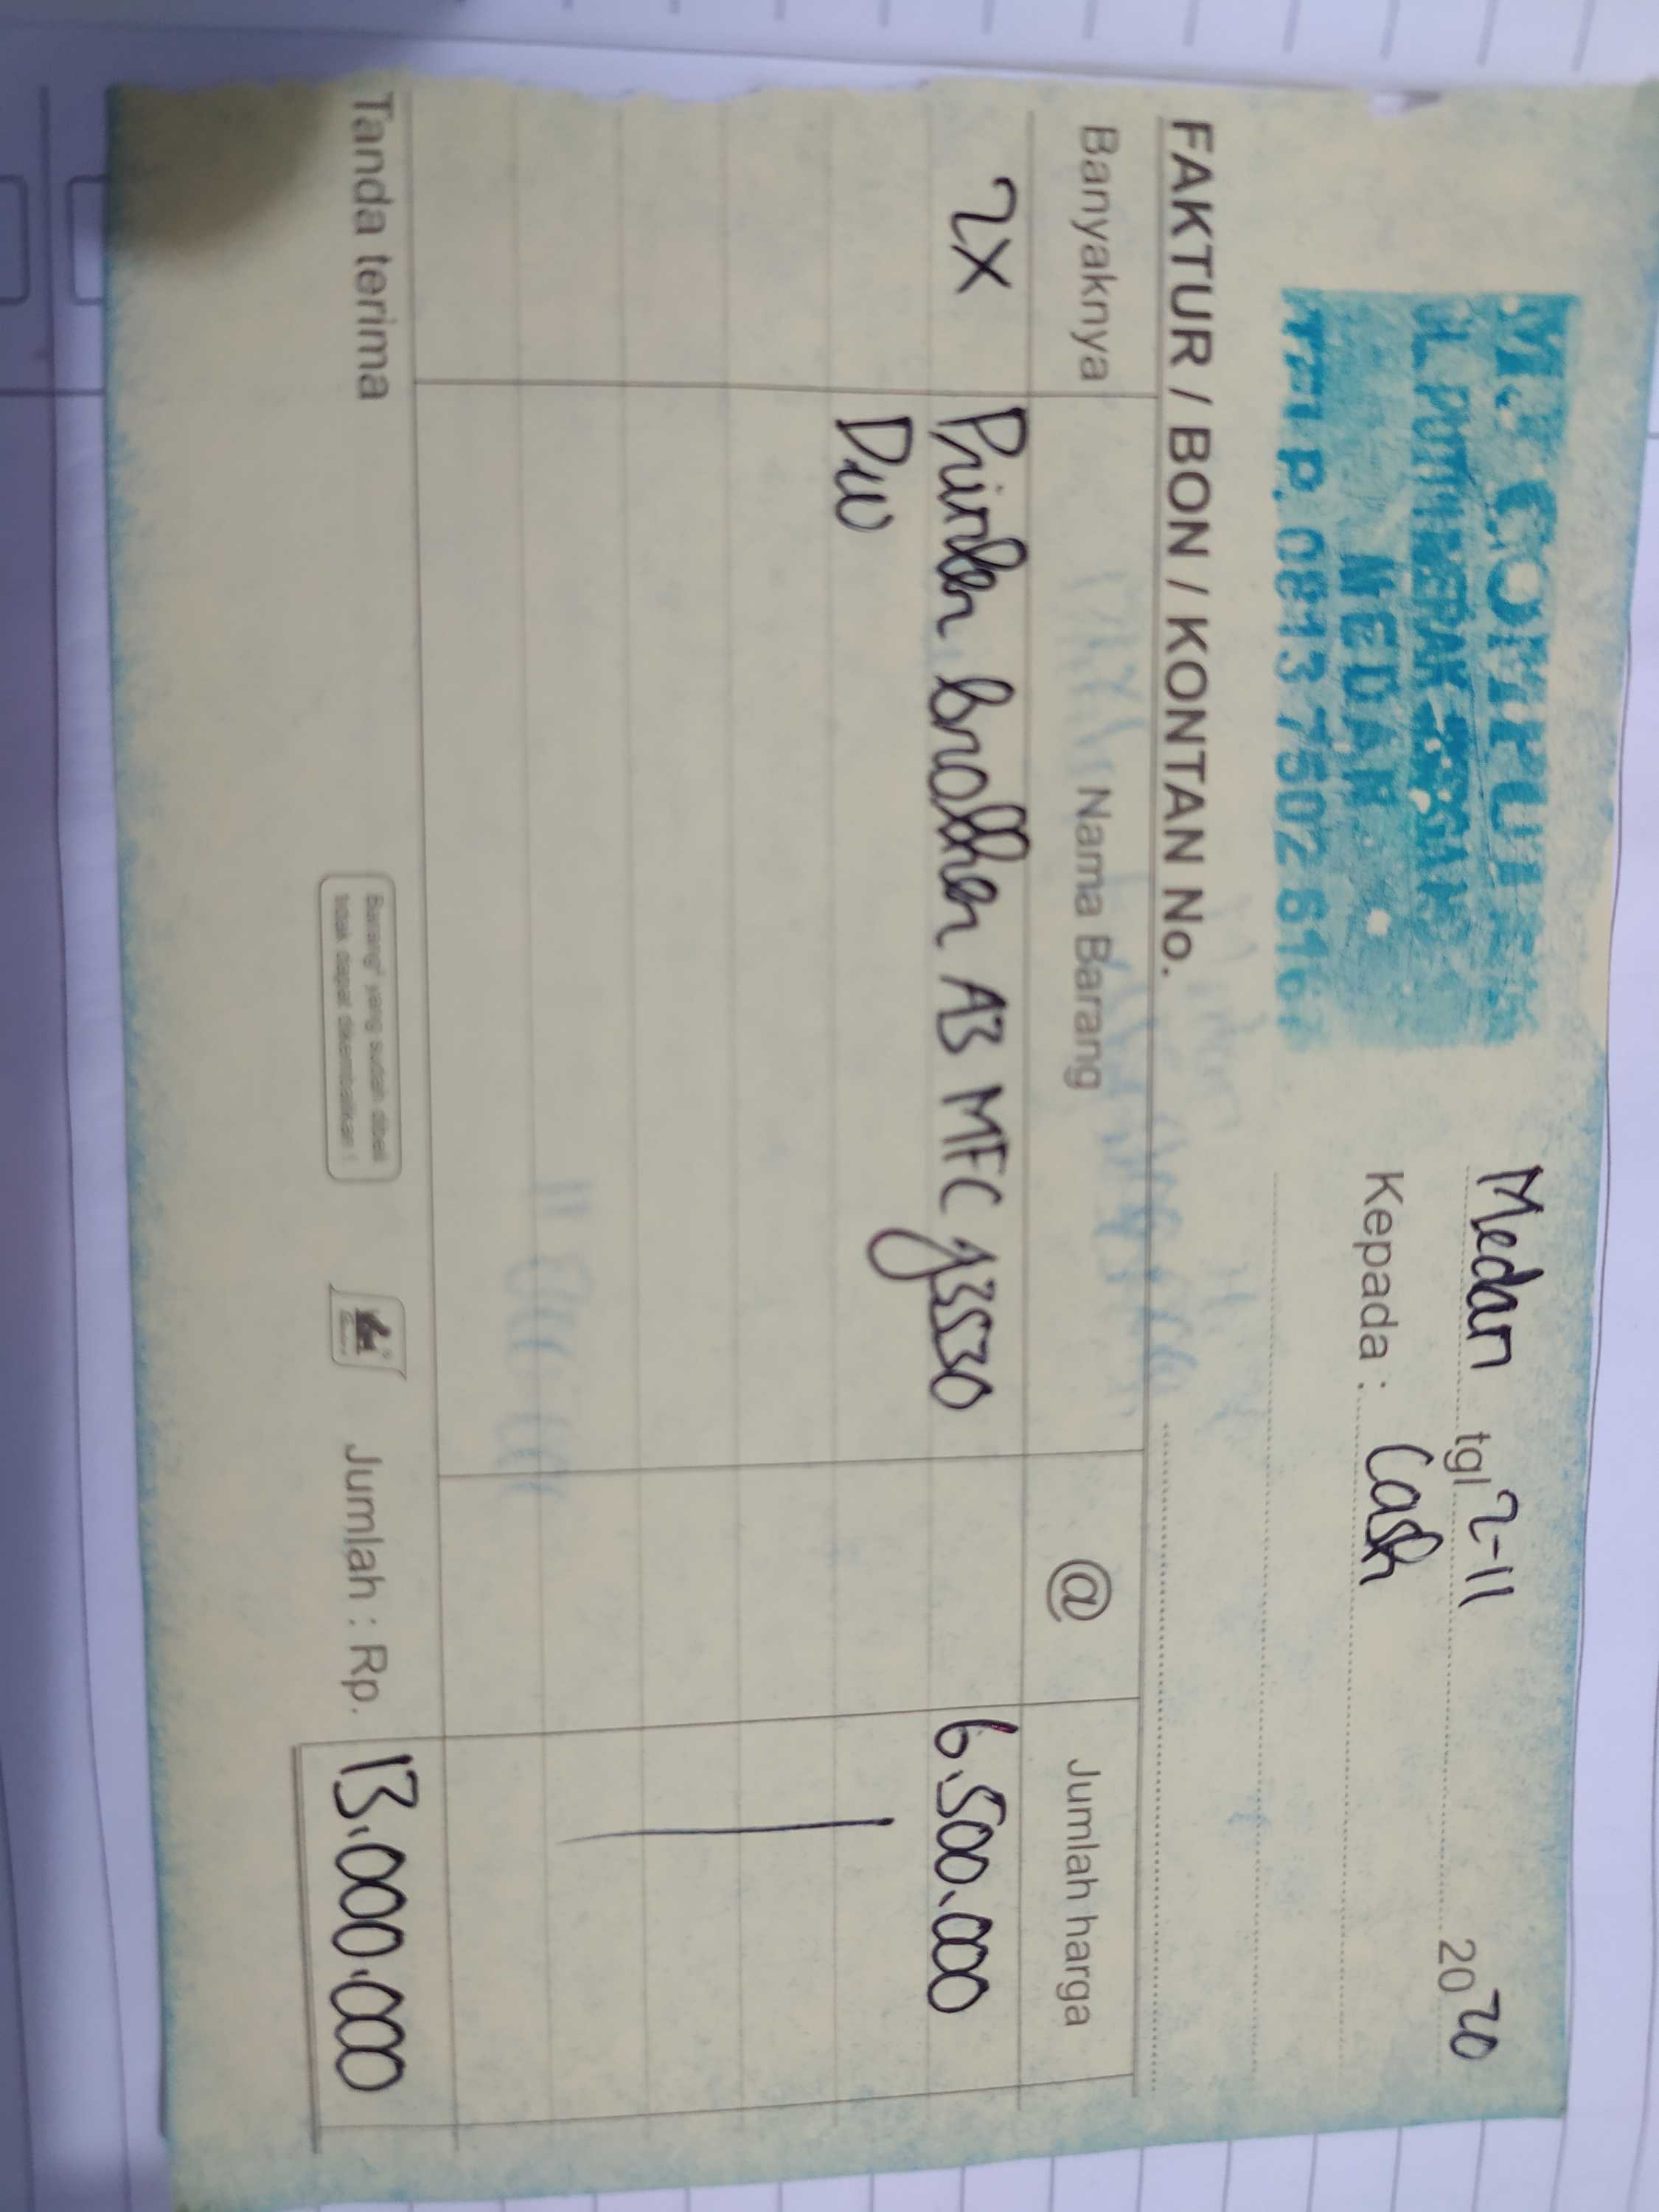 COMPUTER
MEDAN
TELP. 0813 7502 616
Medan tgl 2-11 2020
Kepada : Cash
FAKTUR / BON / KONTAN No.
Banyaknya Nama Barang @ Jumlah harga
2X Printer brother A3 MFC J3530 6.500.000
DW
Tanda terima
Barang² yang sudah dibeli
tidak dapat dikembalikan !
Jumlah : Rp. 13.000.000